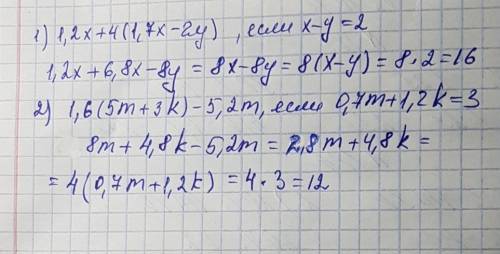 1) 1,2x+4(1,7x-2y) , если x-y=2
1,2x+6,8x-8y=8x-8y=8(x-y)=8·2=16
2) 1,6(5m+3k)-5,2m, если 0,7m+1,2k=3
8m+4,8k-5,2m=2,8m+4,8k=
=4(0,7m+1,2k)=4·3=12